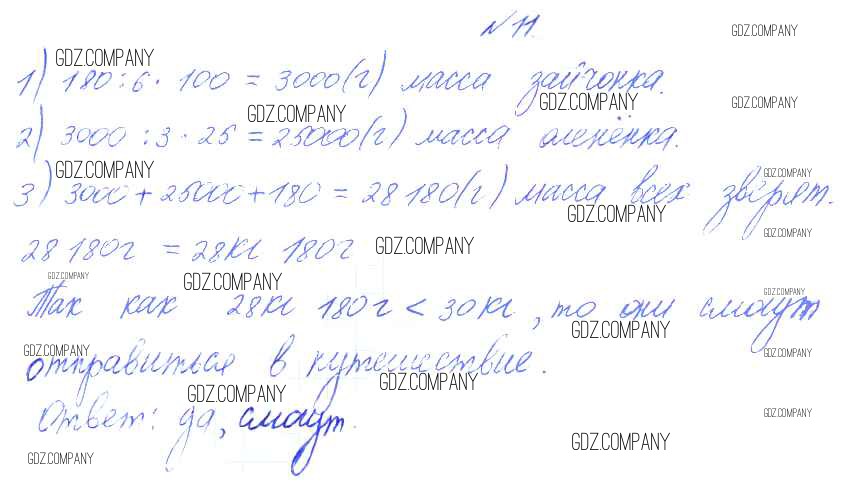 № 11.
GDZ.COMPANY
GDZ.COMPANY
1) 180 : 6 · 100 = 3000 (г) масса зайчонка.
GDZ.COMPANY GDZ.COMPANY GDZ.COMPANY
2) 3000 : 3 · 25 = 25000 (г) масса оленёнка.
GDZ.COMPANY GDZ.COMPANY
3) 3000 + 25000 + 180 = 28 180 (г) масса всех зверят.
GDZ.COMPANY GDZ.COMPANY
28 180 г = 28 кг 180 г GDZ.COMPANY
GDZ.COMPANY GDZ.COMPANY GDZ.COMPANY
Так как 28 кг 180 г < 30 кг, то они смогут
GDZ.COMPANY
GDZ.COMPANY GDZ.COMPANY
отправиться в путешествие.
GDZ.COMPANY GDZ.COMPANY
Ответ: да, смогут.
GDZ.COMPANY
GDZ.COMPANY GDZ.COMPANY